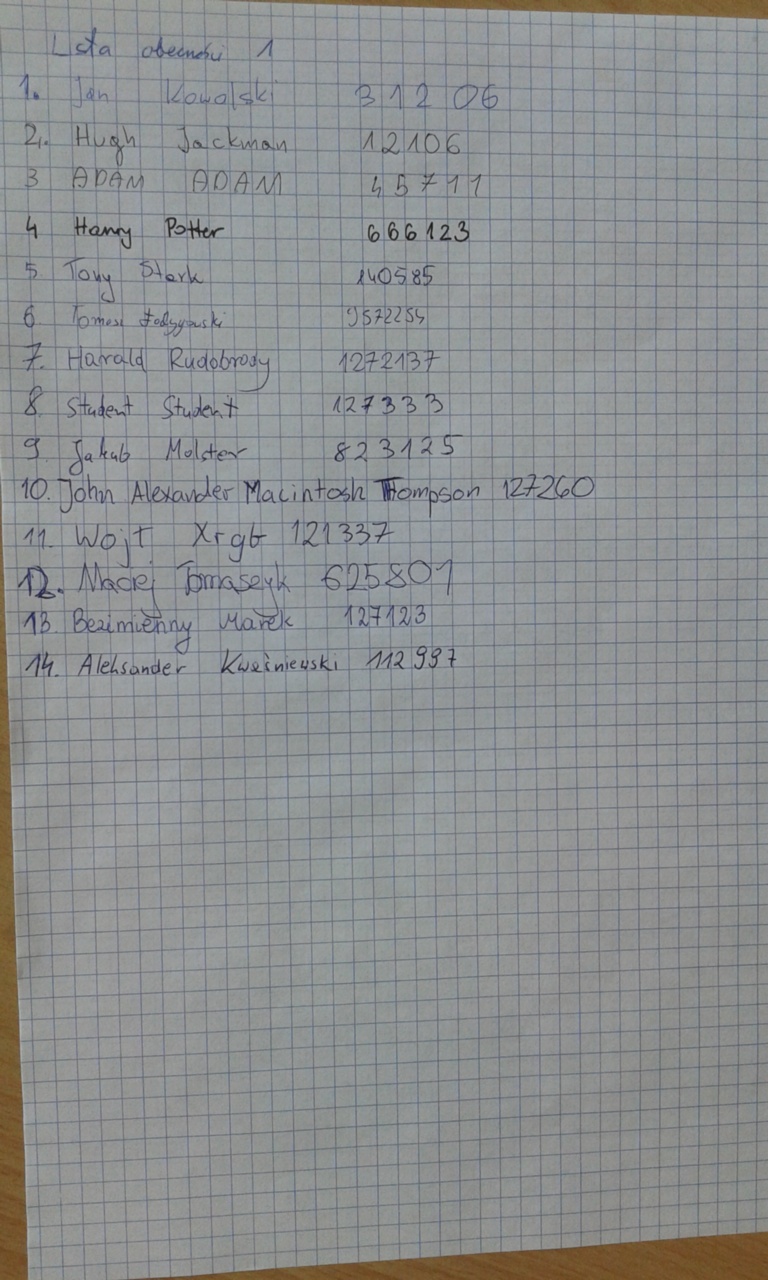 Lista obecności 1
1. Jan Kowalski 31206
2. Hugh Jackman 12106
3 ADAM ADAM 45711
4 Harry Potter 666123
5 Tony Stark 140585
6 Tomasz 9572254
7. Harald Rudobrody 1272137
8. Student Student 127333
9 Jakub Molster 823125
10. John Alexander Macintosh Thompson 127260
11. Wojt Xrgb 121337
12. Maciej Tomaszyk 625801
13. Bezimienny Marek 127123
14. Aleksander Kwaśniewski 112997